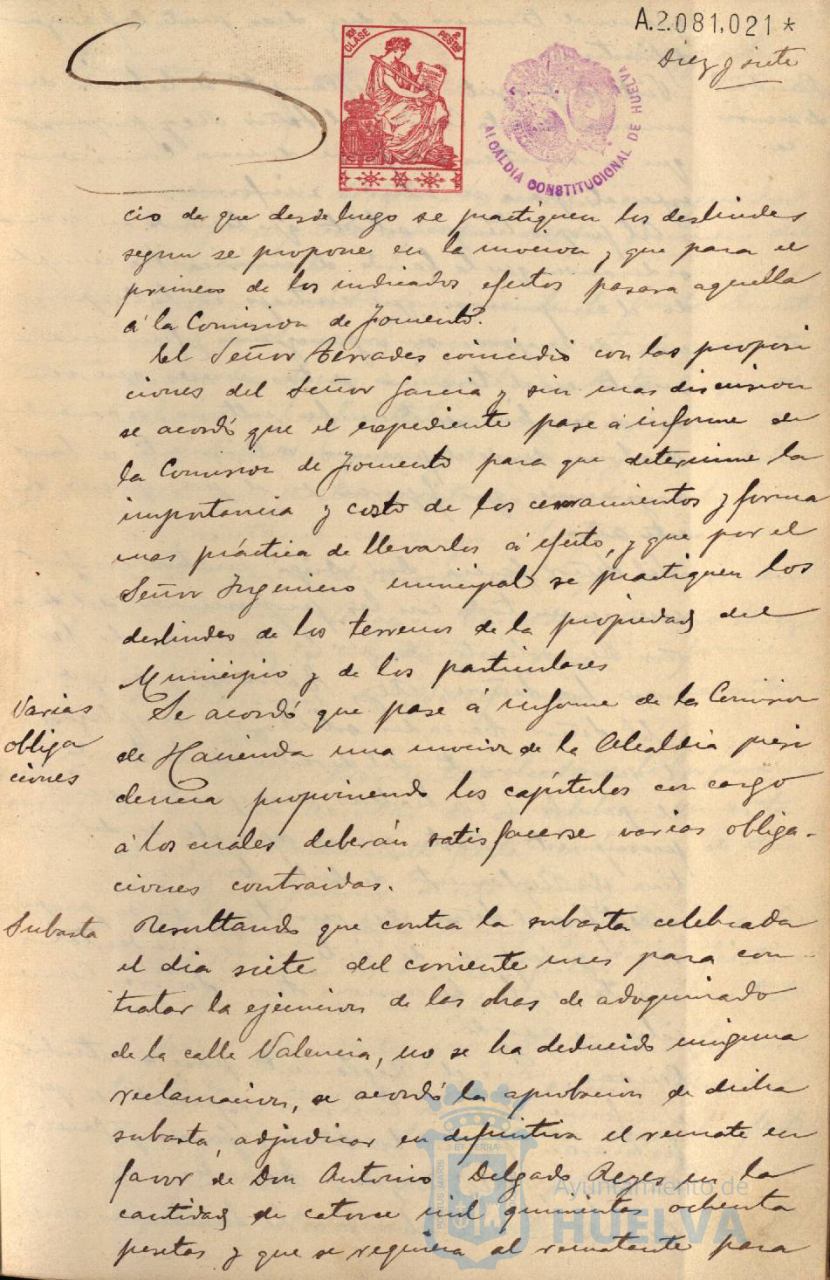 A.2.081,021*
Diez y siete
10ª CLASE
2 PESETAS
ALCALDIA CONSTITUCIONAL DE HUELVA
cio de que desde luego se practiquen los deslindes
segun se propone en la mocion y que para el
primero de los indicados efectos pasara aquella
á la Comision de Fomento.
El Señor Terrades coincidió con las proposi
ciones del Señor Garcia y sin mas discusion
se acordó que el expediente pase á informe de
la Comision de Fomento para que determine la
importancia y costo de los cerramientos y forma
mas práctica de llevarlos á efecto, y que por el
Señor Ingeniero municipal se practiquen los
deslindes de los terrenos de la propiedad del
Municipio y de los particulares
Varias
obliga
ciones
Se acordó que pase á informe de la Comision
de Hacienda una mocion de la Alcaldia presi
dencia proponiendo los capítulos con cargo
á los cuales deberán satisfacerse varias obliga-
ciones contraidas.
Subasta
Resultando que contra la subasta celebrada
el dia siete del corriente mes para con-
tratar la ejecucion de las obras de adoquinado
de la calle Valencia, no se ha deducido ninguna
reclamacion, se acordó la aprobacion de dicha
subasta, adjudicar en definitiva el remate en
favor de Don Antonio Delgado Reyes en la
cantidad de catorce mil quinientas ochenta
pesetas y que se requiera al rematante para
Ayuntamiento de
HUELVA